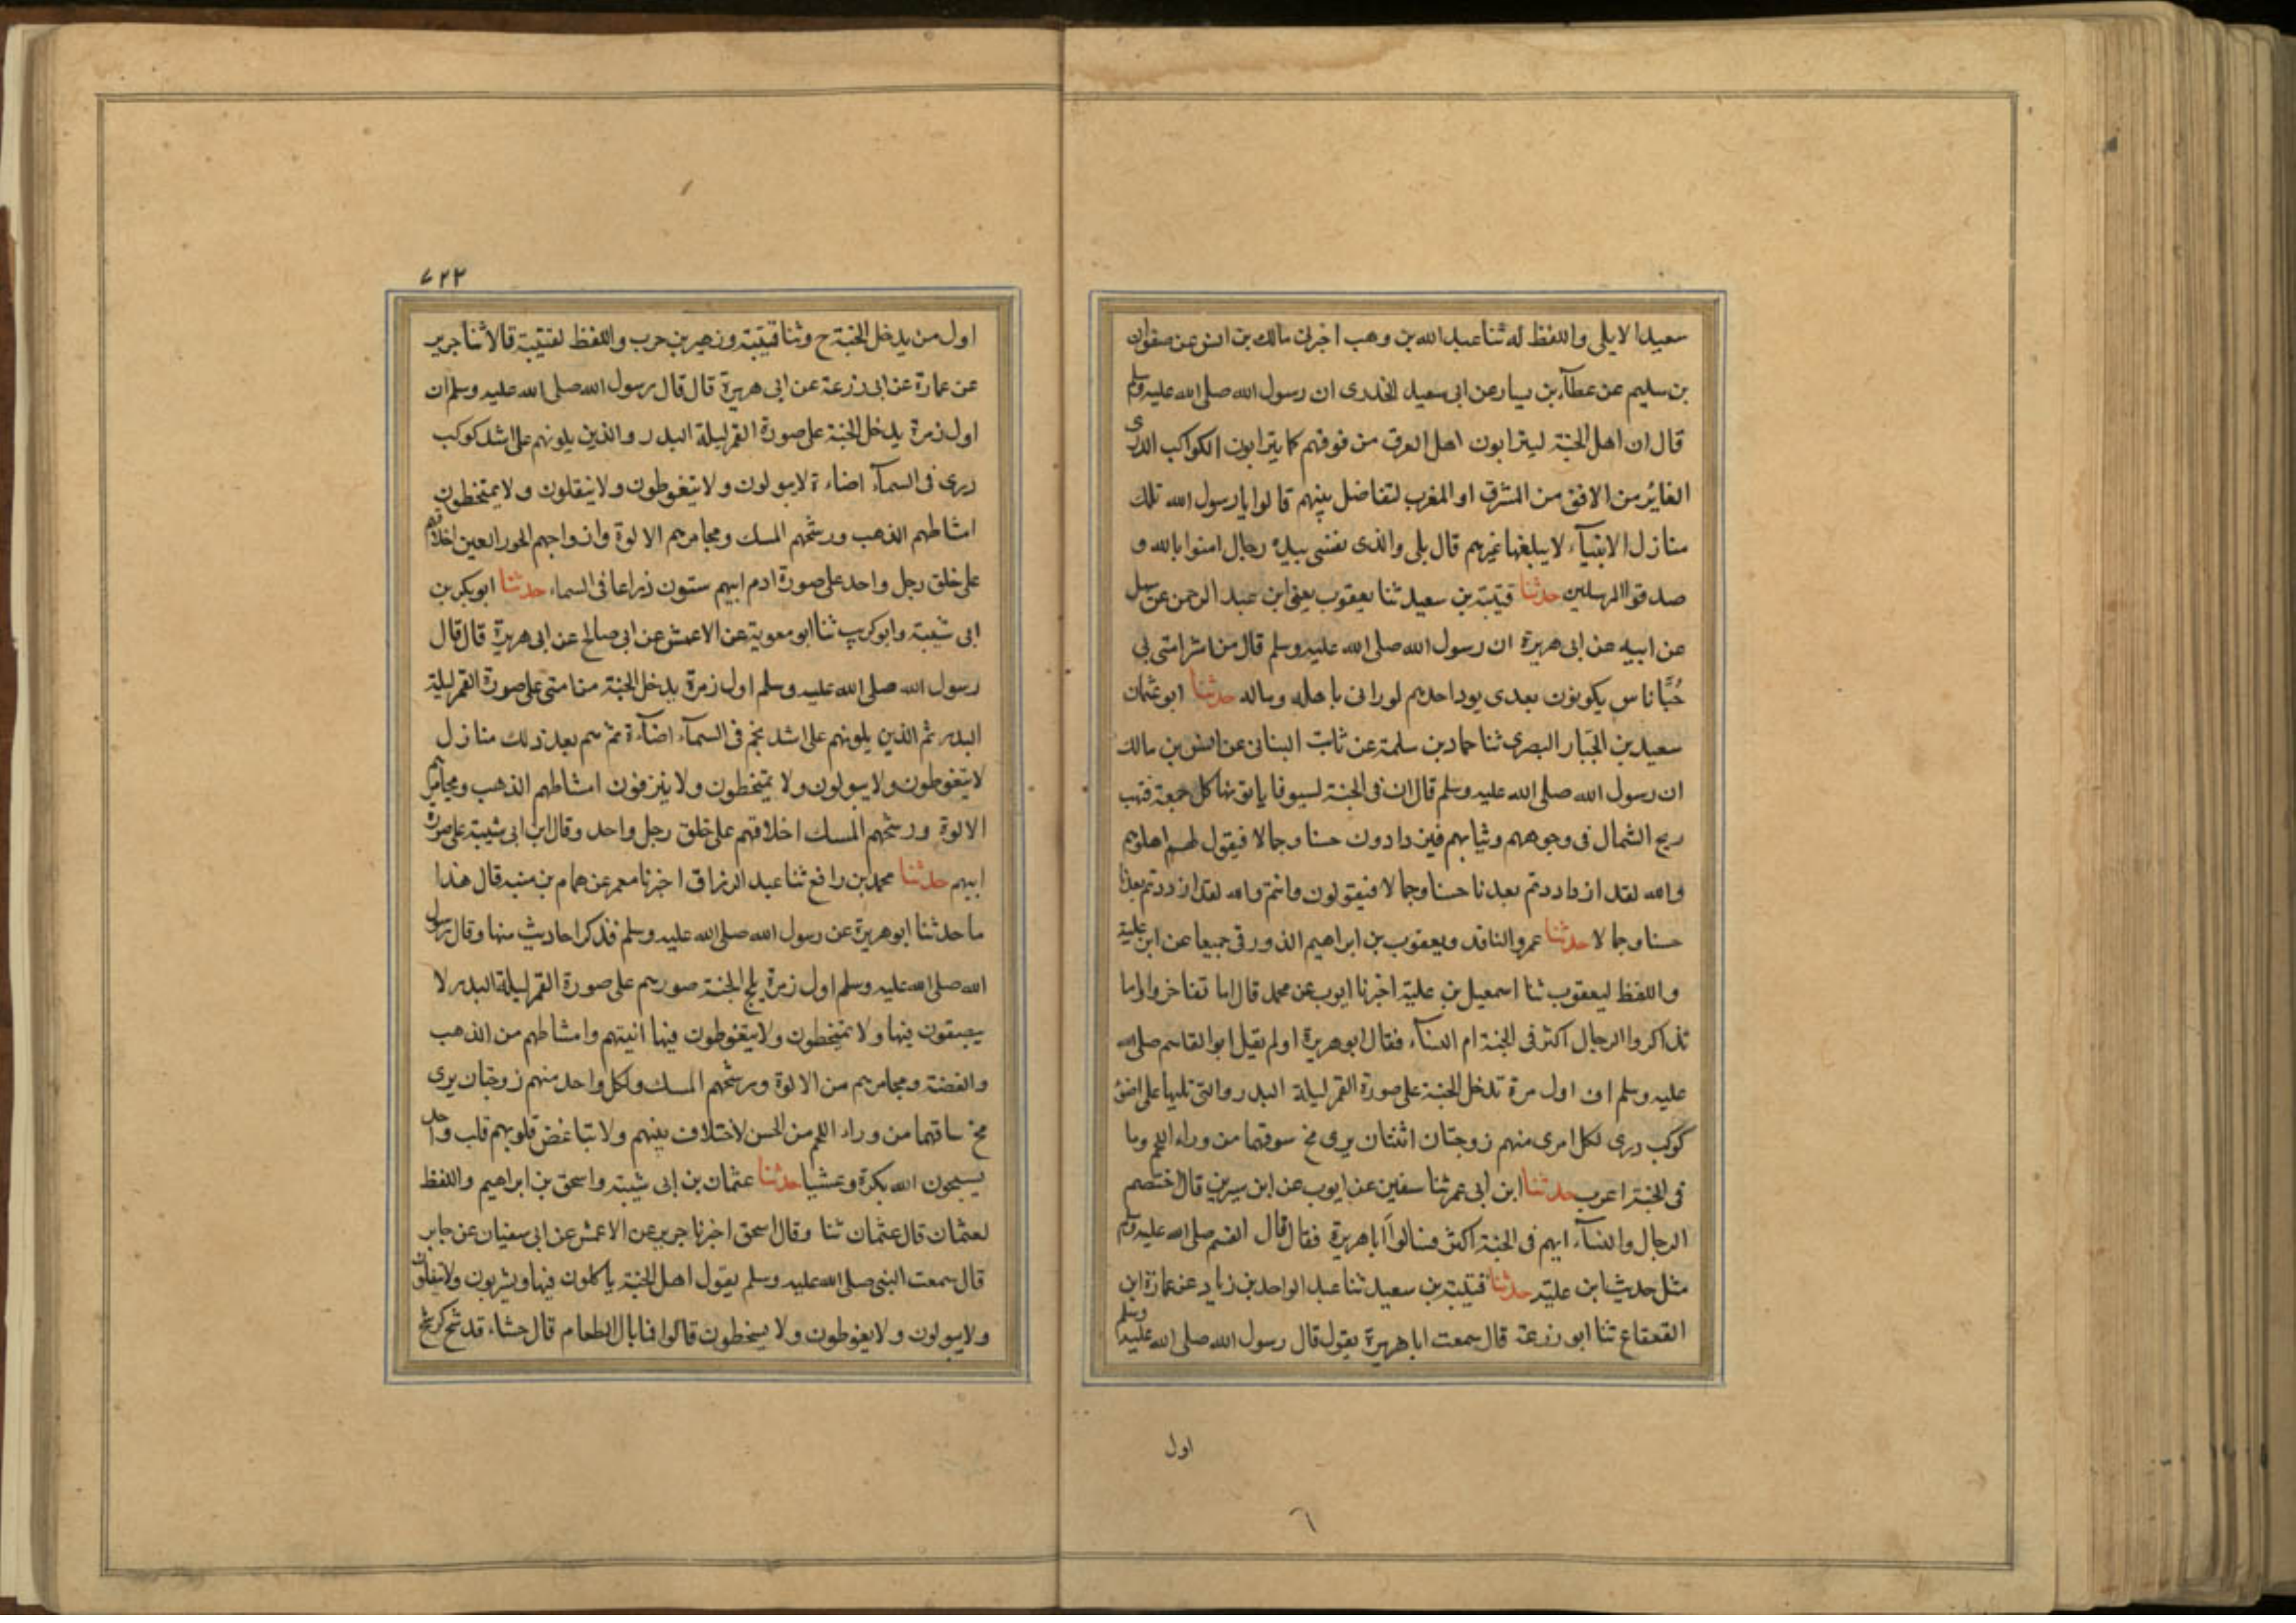 سعيد الايلى واللفظ له ثنا عبد الله بن وهب اخبرنى مالك بن انس عن صفوان
بن سليم عن عطآء بن يسار عن ابى سعيد الخدرى ان رسول الله صلى الله عليه وسلم
قال ان اهل الجنة ليترايون اهل الغرف من فوقهم كما يترايون الكواكب الدرى
الغاير من الافق من المشرق او المغرب لتفاضل بينهم قالوا يا رسول الله تلك
منازل الانبيآء لا يبلغها غيرهم قال بلى والذى نفسى بيده رجال امنوا بالله و
صدقوا المرسلين حدثنا قتيبة بن سعيد ثنا يعقوب يعنى ابن عبد الرحمن عن سهل
عن ابيه عن ابى هريرة ان رسول الله صلى الله عليه وسلم قال من اشد امتى لى
حُبًّا ناس يكونون بعدى يود احدهم لو رانى باهله وماله حدثنا ابو عثمان
سعيد بن الجبار البصرى ثنا حماد بن سلمة عن ثابت البنانى عن انس بن مالك
ان رسول الله صلى الله عليه وسلم قال ان فى الجنة لسوقا ياتونها كل جمعة فتهب
ريح الشمال فى وجوههم وثيابهم فيزدادون حسنا وجمالا فيقول لهم اهلوهم
والله لقد ازداددتم بعدنا حسنا وجمالا فيقولون وانتم والله لقد ازددتم بعدنا
حسنا وجمالا حدثنا عمرو الناقد ويعقوب بن ابراهيم الدورقى جميعا عن ابن علية
واللفظ ليعقوب ثنا اسمعيل بن علية اخبرنا ايوب عن محمد قال اما تفاخروا واما
تذاكروا الرجال اكثر فى الجنة ام النسآء فقال ابو هريرة اولم يقل ابو القاسم صلى الله
عليه وسلم ان اول مرة تدخل الجنة على صورة القمر ليلة البدر والتى تليها على اضؤ
كوكب درى لكل امرى منهم زوجتان اثنتان يرى مخ سوقهما من وراء اللحم وما
فى الجنة اعزب حدثنا ابن ابى عمر ثنا سفين عن ايوب عن ابن سيرين قال اختصم
الرجال والنسآء ايهم فى الجنة اكثر فسالوا ابا هريرة فقال قال القسم صلى الله عليه وسلم
مثل حديث ابن علية حدثنا قتيبة بن سعيد ثنا عبد الواحد بن زياد عن عمارة ابن
القعقاع ثنا ابو زرعة قال سمعت ابا هريرة يقول قال رسول الله صلى الله عليه وسلم
اول
٦
٧٢٢
اول من يدخل الجنة ح وثنا قتيبة وزهير بن حرب واللفظ لقتيبة قالا ثنا جرير
عن عمارة عن ابى زرعة عن ابى هريرة قال قال رسول الله صلى الله عليه وسلم ان
اول زمرة يدخل الجنة على صورة القمر ليلة البدر والذين يلونهم على اشد كوكب
درى فى السمآء اضاءة لا يبولون ولا يتغوطون ولا يتفلون ولا يمتخطون
امشاطهم الذهب ورشحهم المسك ومجامرهم الالوة وازواجهم الحور العين اخلاقهم
على خلق رجل واحد على صورة ادم ابيهم ستون ذراعا فى السماء حدثنا ابو بكر بن
ابى شيبة وابو كريب ثنا ابو معوية عن الاعمش عن ابى صالح عن ابى هريرة قال قال
رسول الله صلى الله عليه وسلم اول زمرة يدخل الجنة من امتى على صورة القمر ليلة
البدر ثم الذين يلونهم على اشد نجم فى السمآء اضآءة ثم هم بعد ذلك منازل
لا يتغوطون ولا يبولون ولا يمتخطون ولا ينزفون امشاطهم الذهب ومجامرهم
الالوة ورشحهم المسك اخلاقهم على خلق رجل واحد وقال ابن ابى شيبة على صورة
ابيهم حدثنا محمد بن رافع ثنا عبد الرزاق اخبرنا معمر عن همام بن منبه قال هذا
ما حدثنا ابو هريرة عن رسول الله صلى الله عليه وسلم فذكر احاديث منها وقال رسول
الله صلى الله عليه وسلم اول زمرة يلج الجنة صورهم على صورة القمر ليلة البدر لا
يبصقون فيها ولا يمتخطون ولا يتغوطون فيها انيتهم وامشاطهم من الذهب
والفضة ومجامرهم من الالوة ورشحهم المسك ولكل واحد منهم زوجتان يرى
مخ ساقهما من وراء اللحم من الحسن لا ختلاف بينهم ولا تباغض قلوبهم قلب واحد
يسبحون الله بكرة وعشيا حدثنا عثمان بن ابى شيبة واسحق بن ابراهيم واللفظ
لعثمان قال عثمان ثنا وقال اسحق اخبرنا جرير عن الاعمش عن ابى سفيان عن جابر
قال سمعت النبى صلى الله عليه وسلم يقول اهل الجنة ياكلون فيها ويشربون ولا يتفلون
ولا يبولون ولا يغوطون ولا يمتخطون قالوا فما بال الطعام قال جشاء قد شح كرشح